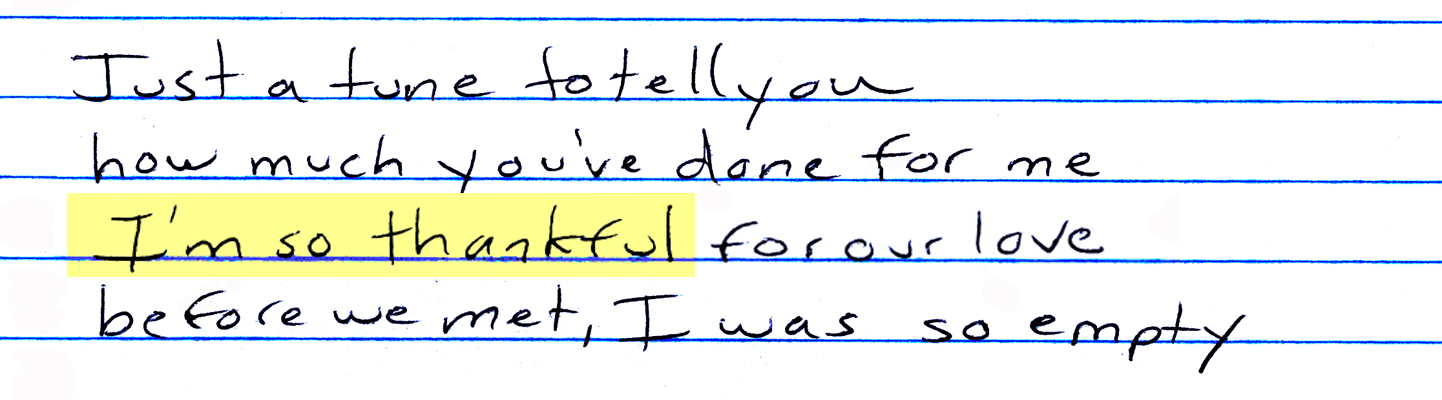 Just a tune to tell you
how much you've done for me
I'm so thankful for our love
before we met, I was so empty